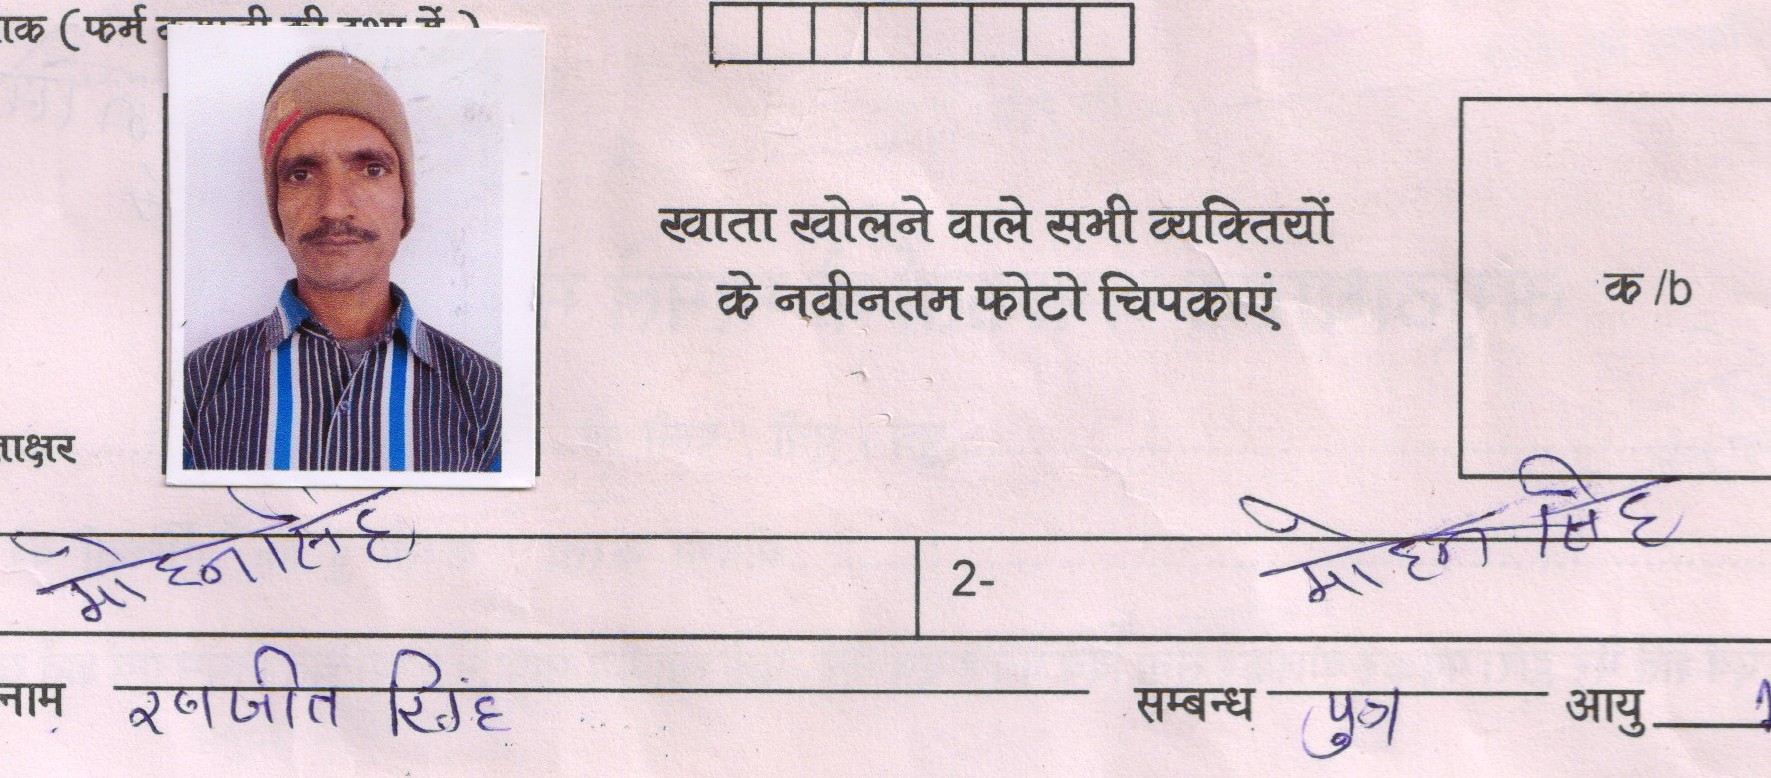 (फर्म
खाता खोलने वाले सभी व्यक्तियों
के नवीनतम फोटो चिपकाएं
क /b
मोहन सिंह
2- मोहन सिंह
नाम रणजीत सिंह सम्बन्ध पुत्र आयु